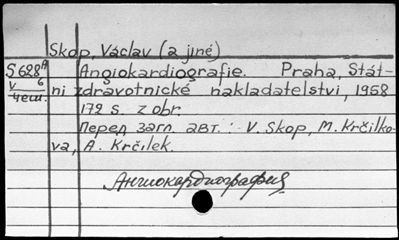 Skop, Václav (a jiné)
S628ᴬ Angiokardiografie. Praha, Stát-
V 6 ní zdravotnické nakladatelství, 1958
Чеш. 172 s. z obr.
Перед загл. авт.: V. Skop, M. Krčilko-
va, A. Krčilek.
Ангиокардиография